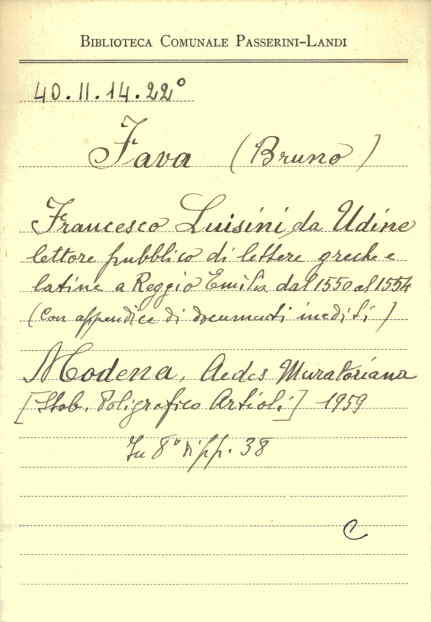 BIBLIOTECA COMUNALE PASSERINI-LANDI
40.II.14.22°
Fava (Bruno)
Francesco Luisini, da Udine
lettore pubblico di lettere greche e
latine a Reggio Emilia dal 1550 al 1554
(con appendice di documenti inediti)
Modena, Aedes Muratoriana
[Stab. Poligrafico Artioli] 1959
In 8° di pp. 38
C